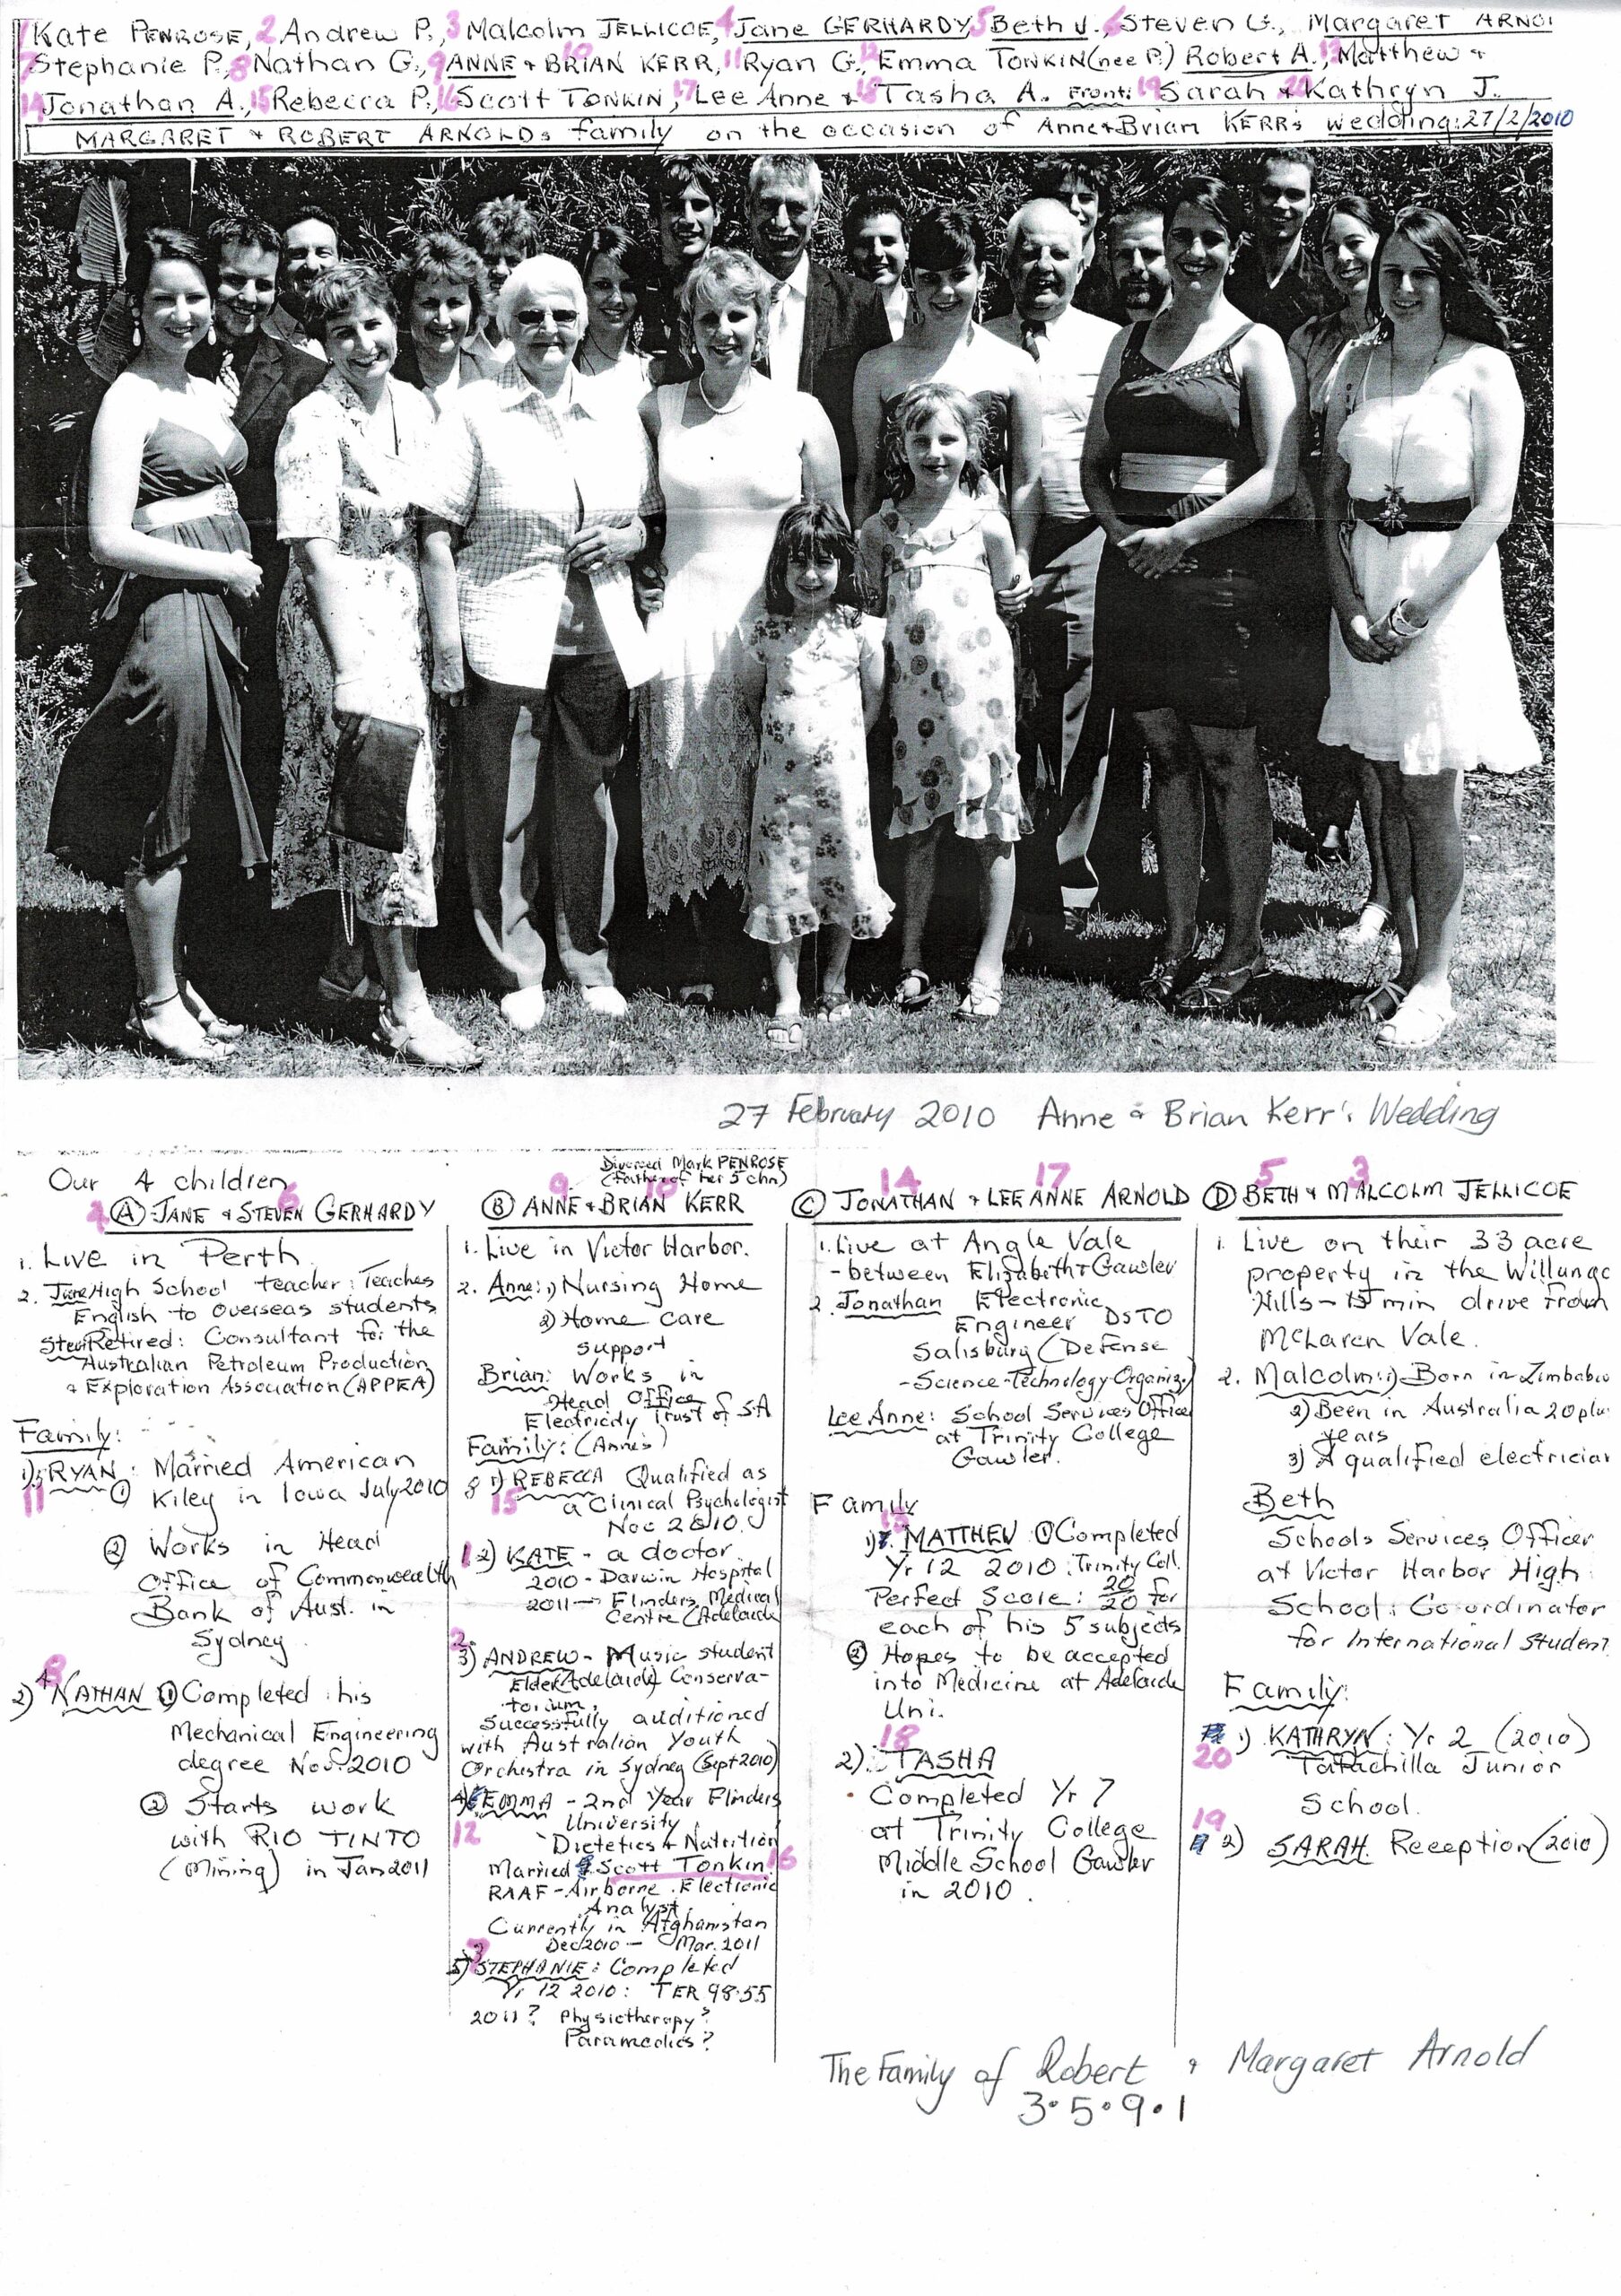 1 Kate PENROSE, 2 Andrew P., 3 Malcolm JELLICOE, 4 Jane GERHARDY, 5 Beth J., 6 Steven G., Margaret ARNO
7 Stephanie P., 8 Nathan G., 9 ANNE & 10 BRIAN KERR, 11 Ryan G., 12 Emma TONKIN (nee P.) Robert A., 13 Matthew &
14 Jonathan A., 15 Rebecca P., 16 Scott TONKIN, 17 Lee Anne & 18 Tasha A. Front: 19 Sarah & 20 Kathryn J.
MARGARET & ROBERT ARNOLDs family on the occasion of Anne & Brian KERR's wedding: 27/2/2010
27 February 2010 Anne & Brian Kerr's Wedding
Our 4 children
4 6
Ⓐ JANE & STEVEN GERHARDY
1. Live in Perth.
2. Jane High School teacher: Teaches
English to overseas students
Steve Retired: Consultant for the
Australian Petroleum Production
& Exploration Association (APPEA)
Family:
1) RYAN: Married American
11 ① Kiley in Iowa July 2010
② Works in Head
Office of Commonwealth
Bank of Aust. in
Sydney.
8
2) NATHAN ① Completed his
Mechanical Engineering
degree Nov. 2010
② Starts work
with RIO TINTO
(Mining) in Jan 2011
Divorced Mark PENROSE
(Father of her 5 chn)
9 10
Ⓑ ANNE & BRIAN KERR
1. Live in Victor Harbor.
2. Anne: 1) Nursing Home
2) Home care
support
Brian: Works in
Head Office
Electricity Trust of SA
Family: (Anne's)
1) REBECCA Qualified as
15 a Clinical Psychologist
Nov 2010.
1 2) KATE - a doctor
2010 - Darwin Hospital
2011 → Flinders Medical
Centre (Adelaide
2
3) ANDREW - Music student
Elder (Adelaide) Conserva-
torium.
Successfully auditioned
with Australian Youth
Orchestra in Sydney (Sept 2010)
4) EMMA - 2nd Year Flinders
12 University
Dietetics & Nutrition
Married Scott Tonkin 16
RAAF - Airborne Electronic
Analyst.
Currently in Afghanistan
Dec 2010 - Mar. 2011
7
5) STEPHANIE: Completed
Yr 12 2010: TER 98.55
2011? Physiotherapy?
Paramedics?
14 17
Ⓒ JONATHAN & LEE ANNE ARNOLD
1. Live at Angle Vale
- between Elizabeth & Gawler
2. Jonathan Electronic
Engineer DSTO
Salisbury (Defense
-Science-Technology-Organiz.)
Lee Anne: School Services Officer
at Trinity College
Gawler.
Family
13
1) MATTHEW ① Completed
Yr 12 2010: Trinity Coll.
Perfect Score: 20/20 for
each of his 5 subjects
② Hopes to be accepted
into Medicine at Adelaide
Uni.
18
2) TASHA
Completed Yr 7
at Trinity College
Middle School Gawler
in 2010.
5 3
Ⓓ BETH & MALCOLM JELLICOE
1. Live on their 33 acre
property in the Willunga
Hills - 15 min drive from
McLaren Vale.
2. Malcolm: 1) Born in Zimbabw
2) Been in Australia 20 plus
years
3) A qualified electrician
Beth
Schools Services Officer
at Victor Harbor High
School: Co-ordinator
for International Student
Family:
1) KATHRYN: Yr 2 (2010)
20 Tatachilla Junior
School.
19
2) SARAH. Reception (2010)
The Family of Robert & Margaret Arnold
3.5.9.1